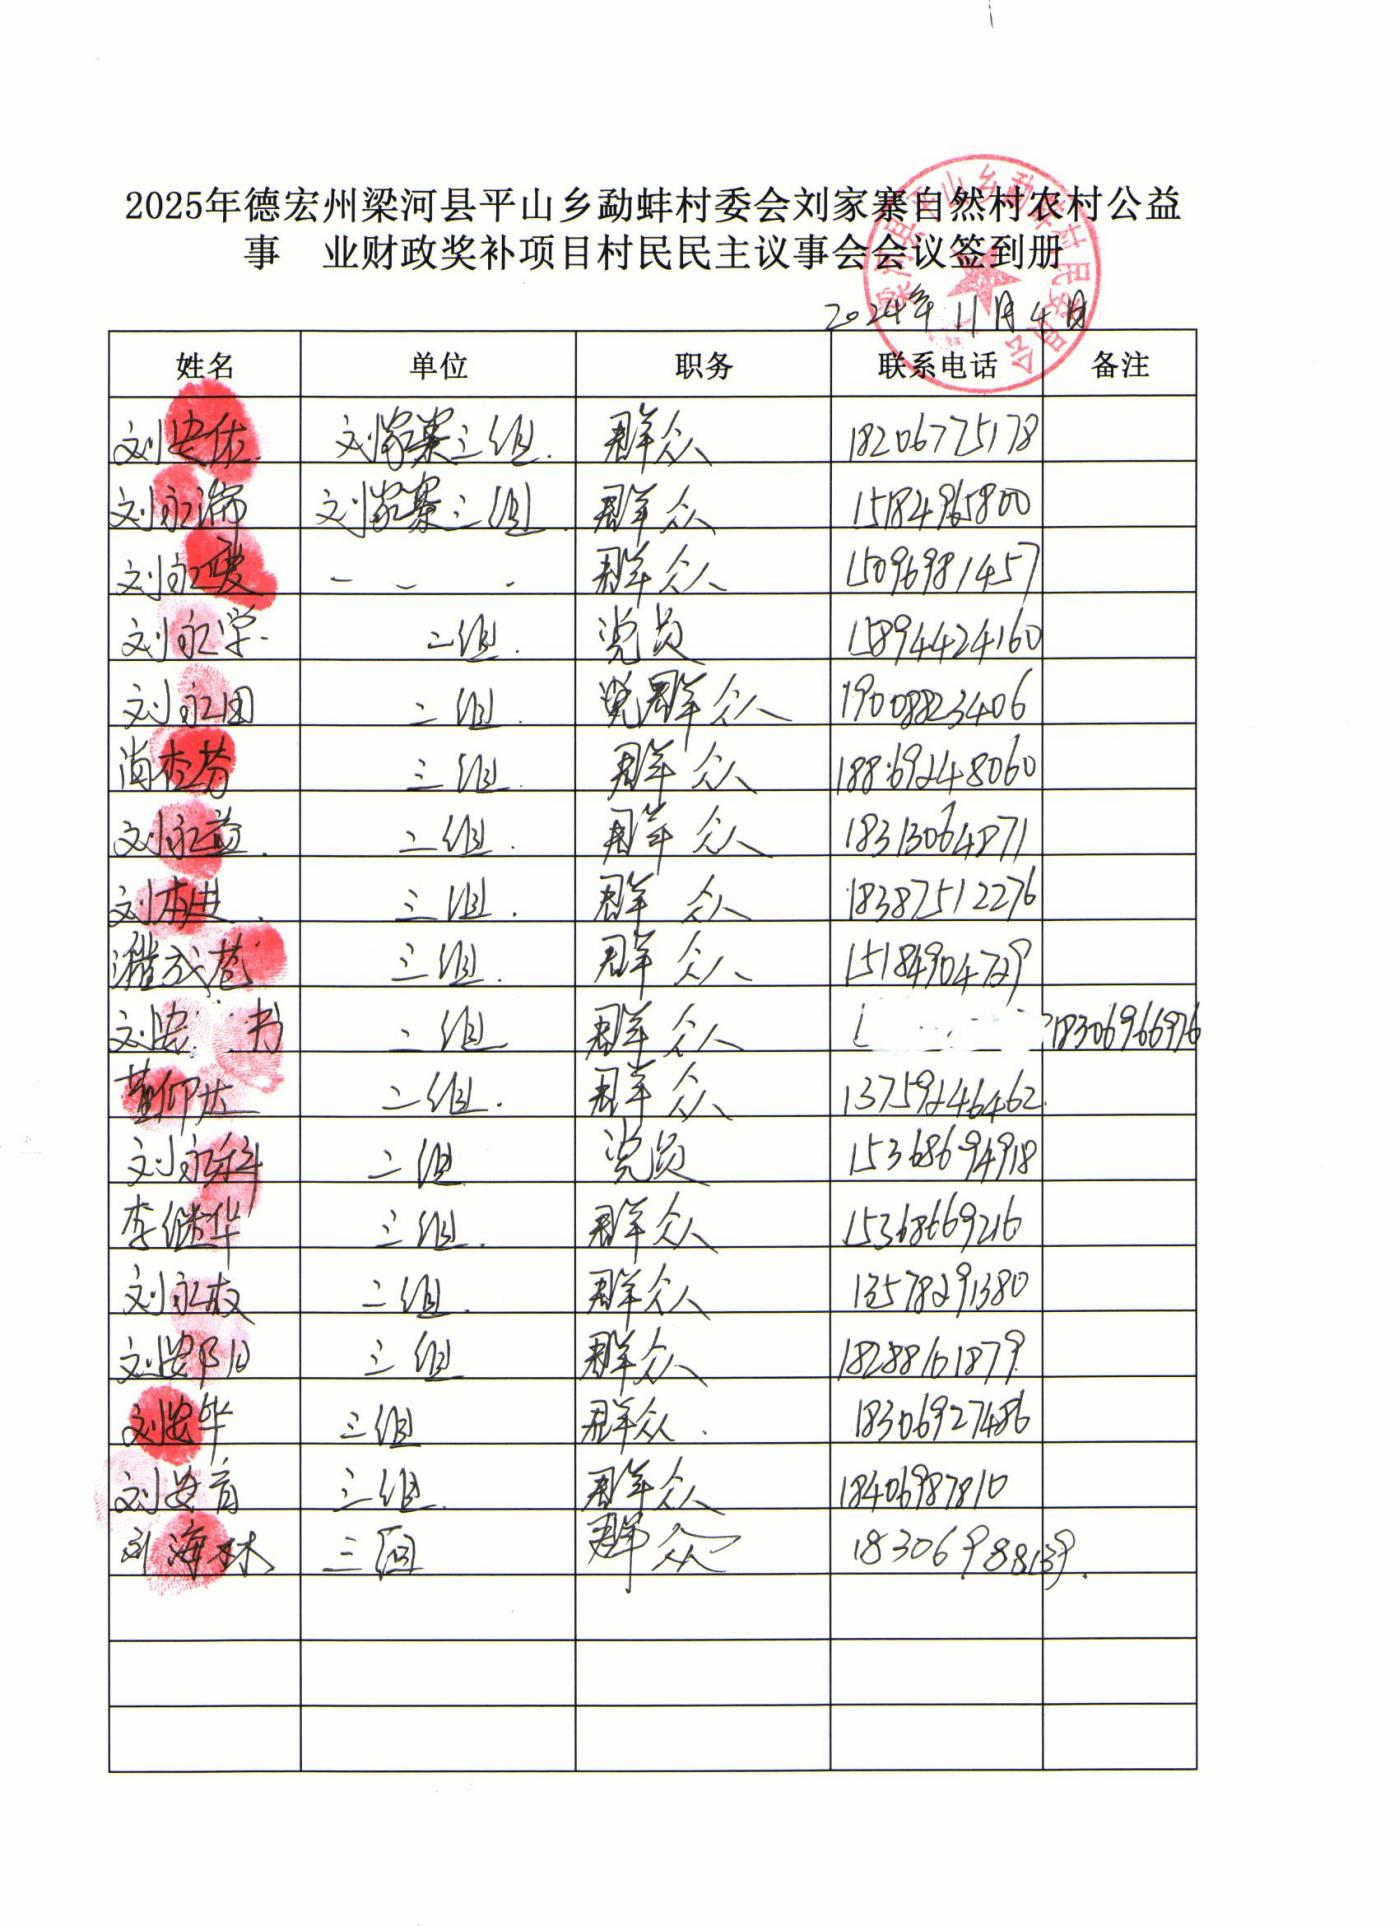 2025年德宏州梁河县平山乡勐蚌村委会刘家寨自然村农村公益
事 业财政奖补项目村民民主议事会会议签到册
梁河县平山乡勐蚌村民委员会
2024年11月4日
姓名 单位 职务 联系电话 备注
刘安佐 刘家寨三组 群众 18206775178
刘永瑞 刘家寨三组 群众 15184965800
刘永 群众 15096981457
刘永学 二组 党员 15894424160
刘永田 二组 群众 19008823406
尚 芬 三组 群众 18869248060
刘永益 二组 群众 18313064871
刘本进 三组 群众 18387512276
成苍 三组 群众 15184904729
刘安 书 二组 群众 18306966976
黄仰 二组 群众 13759246462
刘永科 二组 党员 15368694918
李继华 三组 群众 15368669216
刘永 二组 群众 13578291380
刘安阳 三组 群众 18288161879
刘安华 三组 群众 18306927486
刘安育 三组 群众 18406987810
刘海林 三组 群众 18306988139